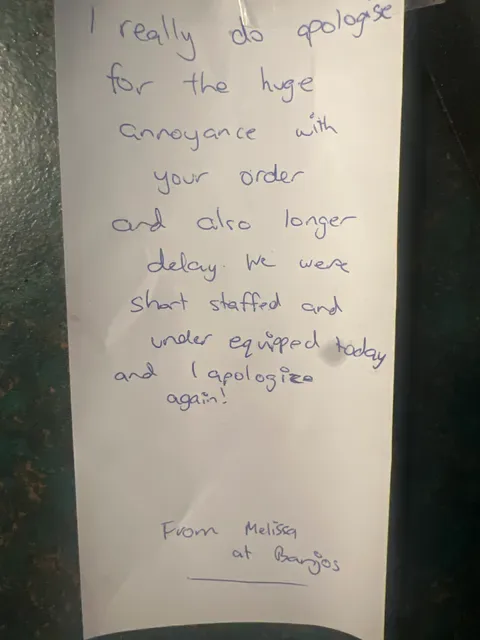 I really do apologise
for the huge
annoyance with
your order
and also longer
delay. We were
short staffed and
under equipped today
and I apologize
again!
From Melissa
at Banjos